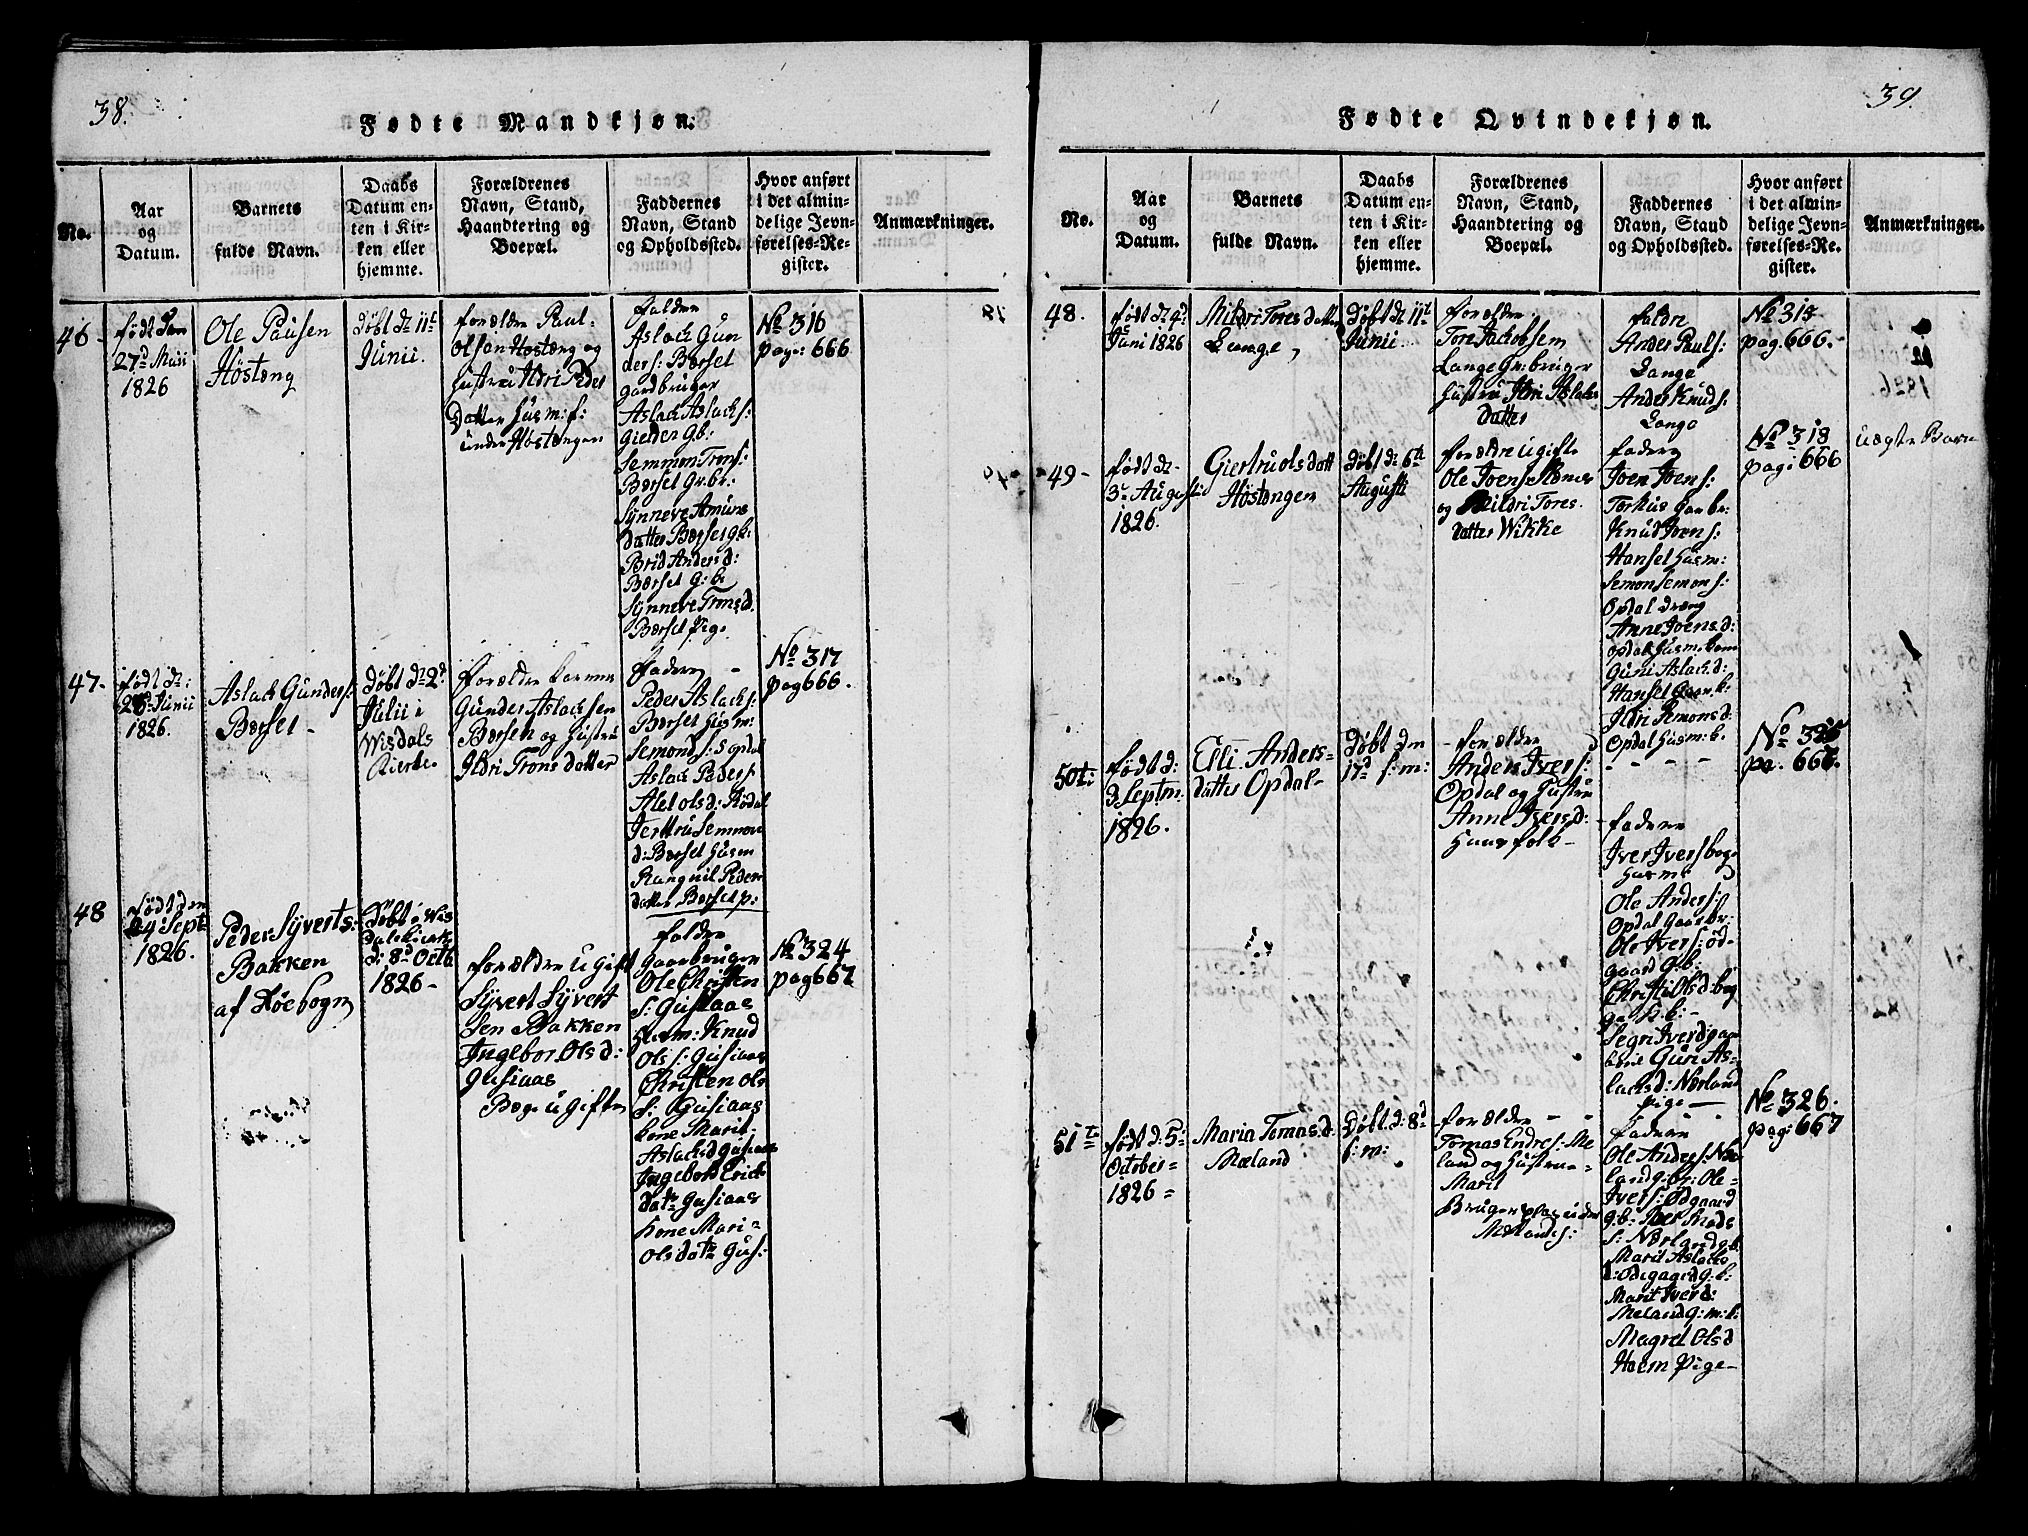 38.
Fødte Mandkjøn.
No.
Aar
og
Datum.
Barnets
fulde Navn.
Daabs
Datum en-
ten i Kir-
ken eller
hjemme.
Forældrenes
Navn, Stand,
Haandtering og
Boepæl.
Faddernes
Navn, Stand
og Opholdssted.
Hvor anført
i det almin-
delige Jevn-
førelses-Re-
gister.
Anmærkninger.
46
født den
27d Maii
1826
Ole Paulsen
Høstæng
Døbt d: 11t
Junii.
forældre Paul
Olsøn Høstæng og
Hustrue Ildri Peder
Datter Husm: f:
under Høstængen
faddere
Aslack Gun
ders: Børset
gardbruger
Aslack Aslacks:
Gielden Gb:
Semmon Trons:
Børset Gr:br:
Synneve Amuns
datter Børset gb:
Brid Anders d:
Børset G:b:
Synneve Tronsd.
Børset Pige
No 316
pag: 666
47-
født d:
28d Junii
1826.
Aslack Gunders:
Børset
Døbt d: 2d
Julii i
Wisdals
Kierke
forældre
Gunder Aslachsen
Børsen og Hustru
Ildri Trons datter
fadere
Peder Aslachs:
Børset Husm:
Semond
Aslack Peders
Alet ols d: Rødal
Jerttru Semmon
d: Børset Husm
Rangnil Peder
datter Børset p:
No 317
pag 666.
48
født den
24 Sept
1826.
Peder Syverts:
Bakken
af Røebogn
Døbt i Wis
dals kierke
d: 8d Octb
1826-
forældre ugift
Syvert Syvert
sen Bakken
Ingebor Ols d:
Gusiaas
Beg: ugifte
faldre
gaarbruger
Ole Christen
s: Gusiaas
Husm: Knud
Ols s: Gusiaas
Christen ols
s: Gusiaas
kone Marit
Aslachsd Gusiaas
Ingebor Erick
dat: Gusiaas
kone Mari
Olsdatr Gus:
No 324
pag 667
39.
Fødte Qvindekjøn.
No.
Aar
og
Datum.
Barnets
fulde Navn.
Daabs
Datum en-
ten i Kir-
ken eller
hjemme.
Forældrenes
Navn, Stand,
Haandtering og
Boepæl.
Faddernes
Navn, Stand
og Opholdssted.
Hvor anført
i det almin-
delige Jevn-
førelses-Re-
gister.
Anmærkninger.
48.
født d: 4d
Juni 1826
Mildri Tores datter
Lange
Døbt d: 11t
Junii
forældre
Tore Jackobsen
Lange Gr: bruger
Hustrue Ildri Aslaks
datter
faldre
Ander Pauls:
Lange
Ander Knuds:
Lange
No 318
pag. 666.
49-
født d:
3d Augusti
1826.
Giertru olsdatt
Høstengen
Døbt d: 6te
Augusti
forældre ugifte
Ole Joens
og Mildri Tores
datter Wikke
fadere
Joen Joens:
Torhus Gaarbr:
Knud Joens:
Hansel Husm:
Semon Semons:
Opdal dræng
Anne Joens d:
Opdal Husm:
Guni Aslach d:
Hansel Gaar. b:
Ildri Semons d:
Opdal Husm: b.
No 318
pag: 666
uægte Barn
50t:
født d:
Septm:
1826.
Elli Anders-
datter Opdal
Døbt den
17d s: m:
forældre
Anders Ivers:
Opdal og Hustru
Anne Ivers d:
Huusfolk
fadere
Iver Ivers bog
Husm:
Ole Anders:
Opdal Gaarbr.
Ole Ivers: ød-
gaard G:b:
Christi Ols d: bog
ga: k:b:
Segri Iversd gaar
Guri As-
lachsd: Nørland
Pige
No 325
pa. 667.
51te
født d: 5
October
1826
Maria Tomas d:
Mæland
Døbt d: 8d
s: m:
forældre
Tomas Endres: Me
land og Hustrue
Marit
Bruger plas under
Mæland s:
fadere
Ole Anders: Nør
land g:br: Ole
Ivers: Ødgaard
g:b:
Marit Aslachs
d: Ødegaard g:b:
Marit Iver d:
Meland g:m:k:
Magrel Ols d
Hoem Pige
No 326.
pag: 667